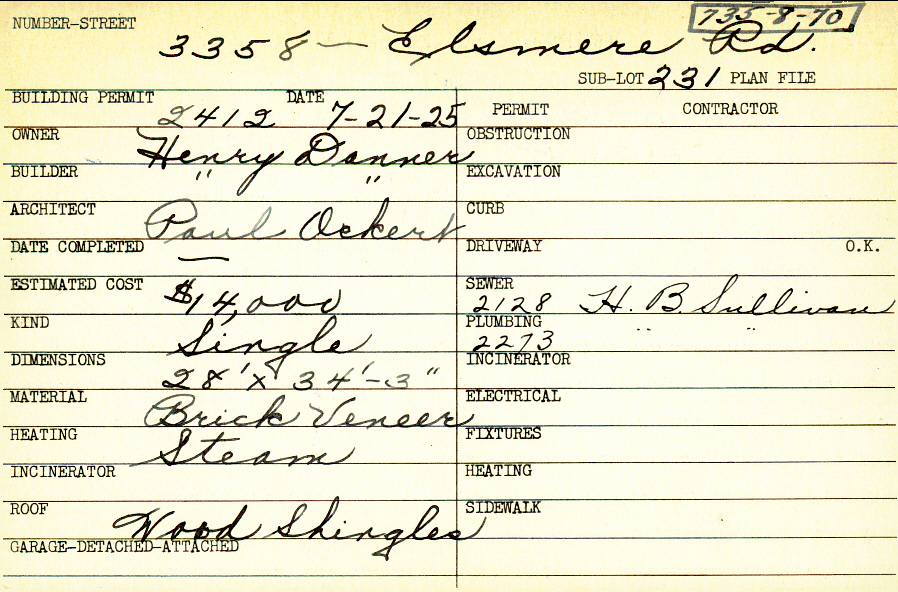 735-8-70
NUMBER-STREET 3358 — Elsmere Rd.
SUB-LOT 231 PLAN FILE
BUILDING PERMIT 2412 DATE 7-21-25 PERMIT CONTRACTOR
OWNER Henry Danner OBSTRUCTION
BUILDER " " EXCAVATION
ARCHITECT Paul Ockert CURB
DATE COMPLETED — DRIVEWAY O.K.
ESTIMATED COST $14,000 SEWER 2128 H. B. Sullivan
KIND Single PLUMBING 2273 " "
DIMENSIONS 28' x 34'-3" INCINERATOR
MATERIAL Brick Veneer ELECTRICAL
HEATING Steam FIXTURES
INCINERATOR HEATING
ROOF Wood Shingles SIDEWALK
GARAGE-DETACHED-ATTACHED